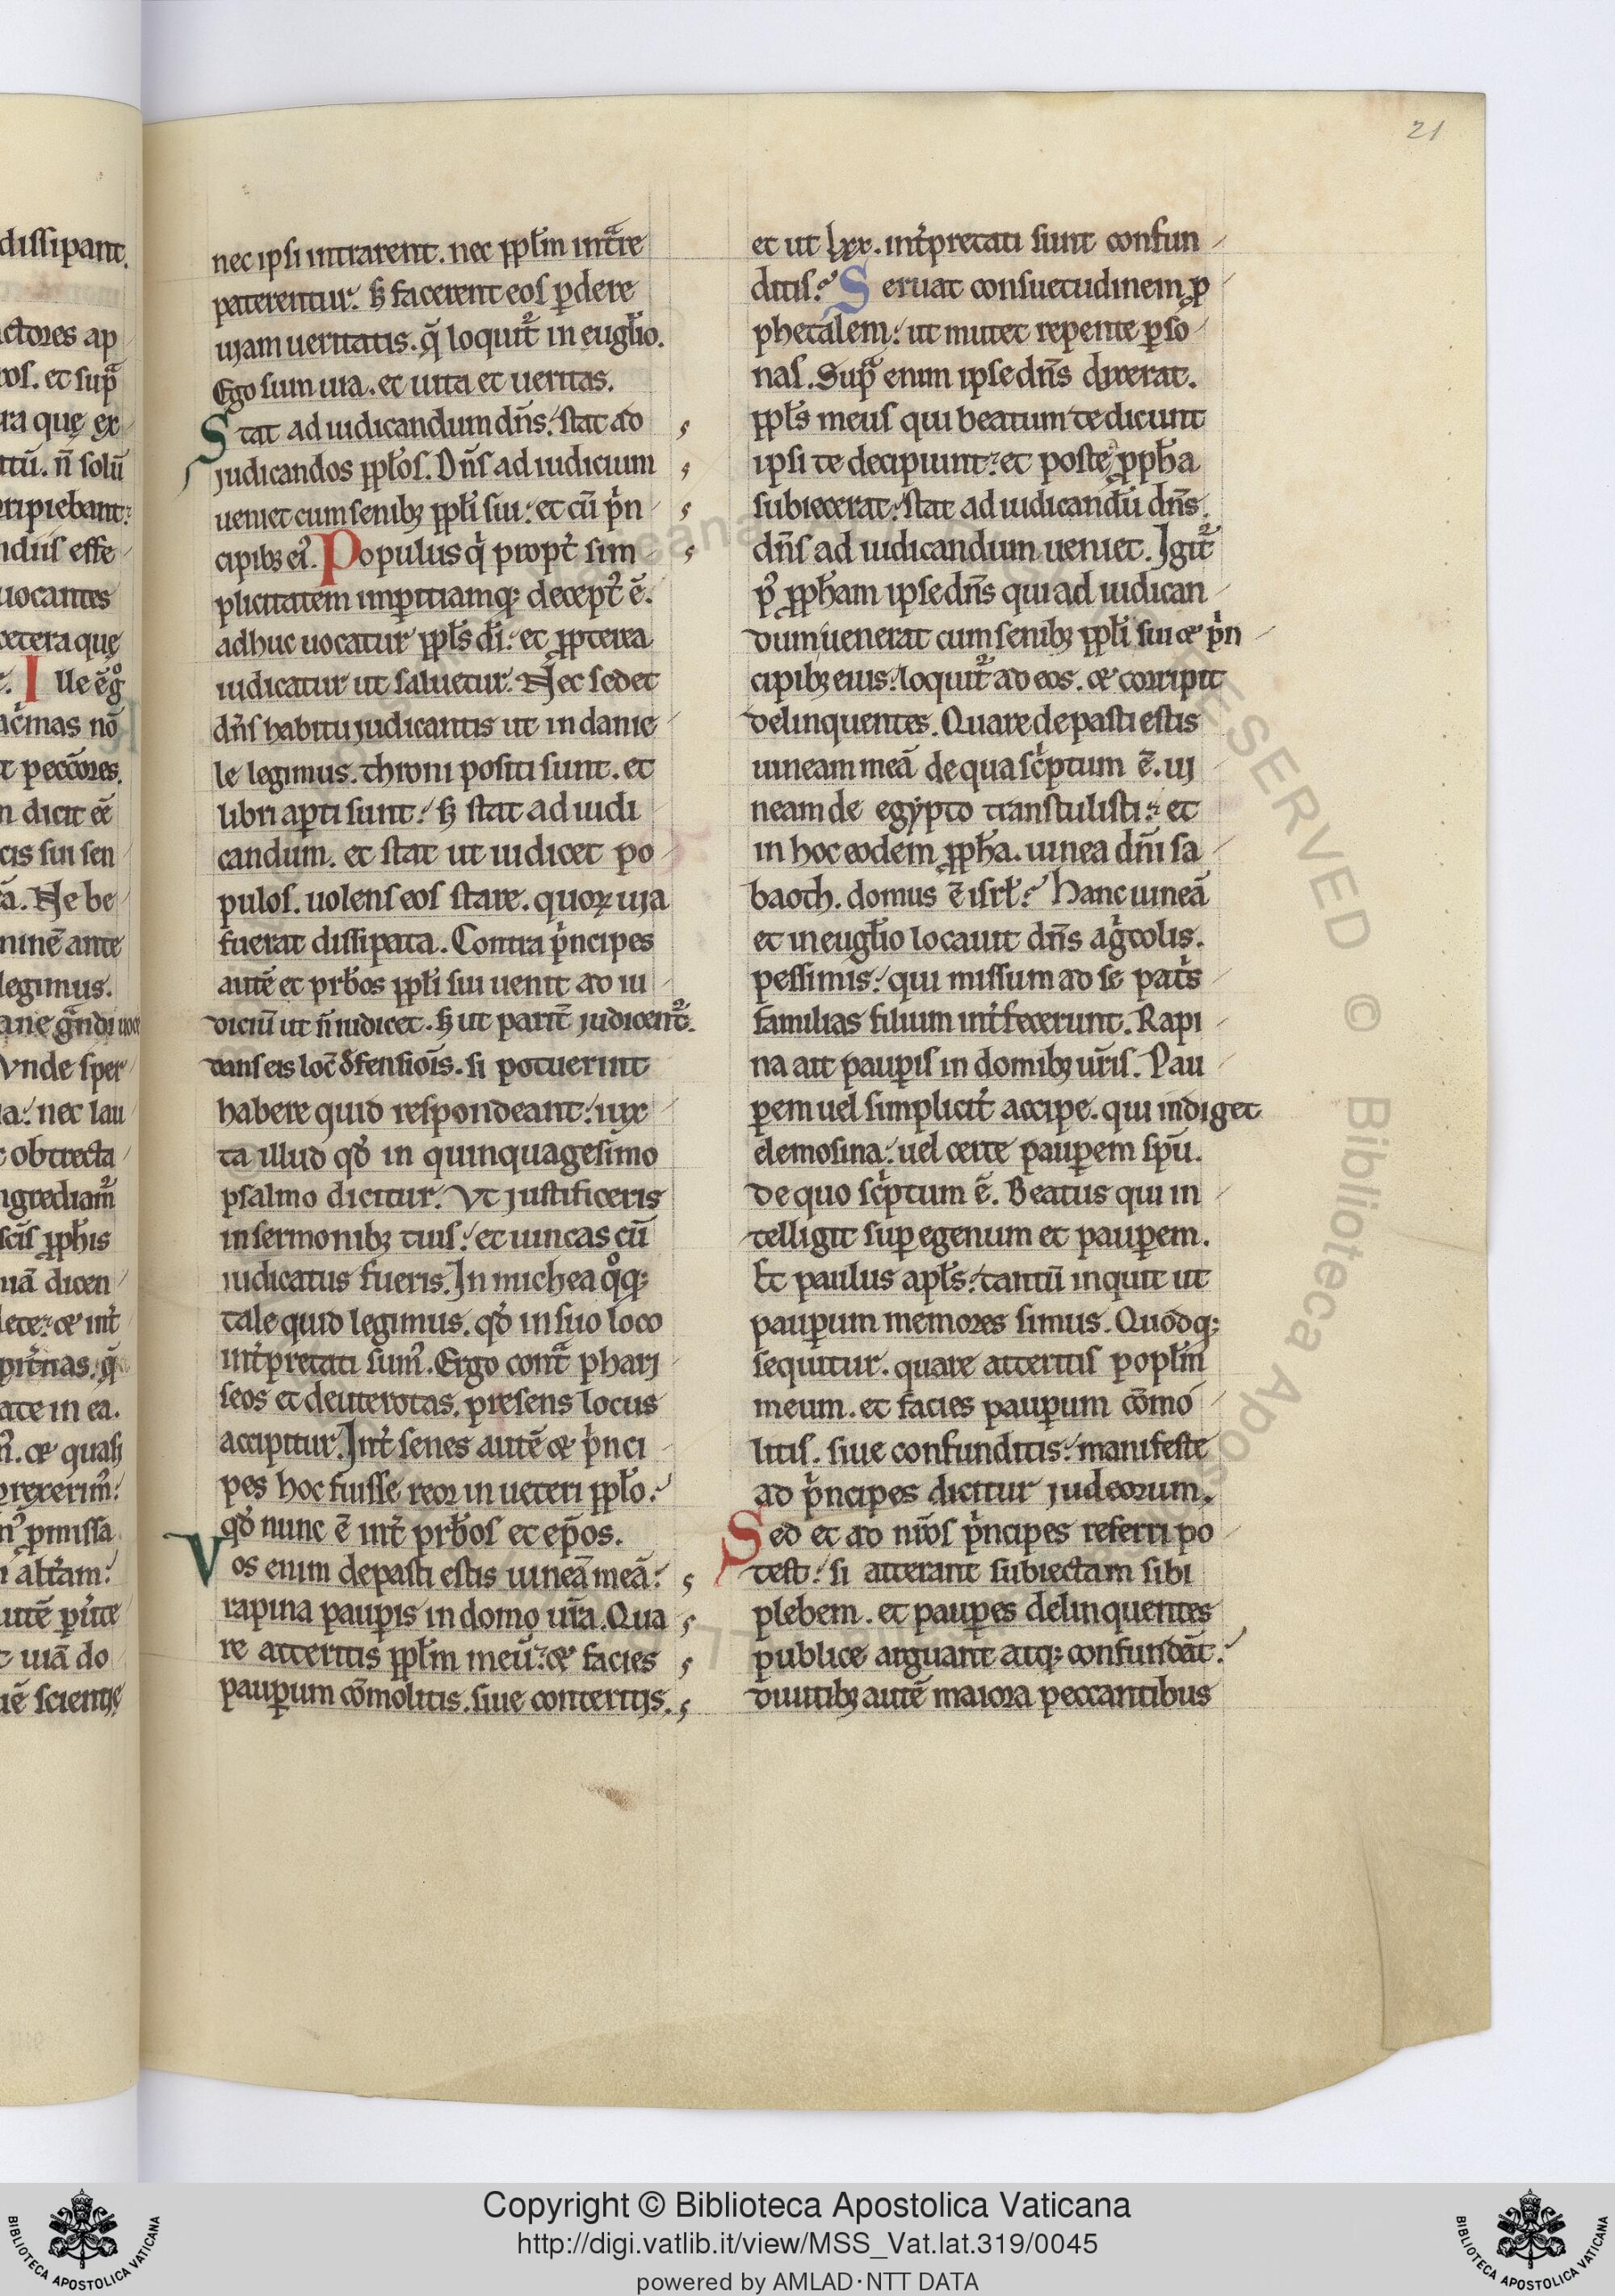 21
nec ipsi intrarent. nec ppl̄m int͛re
paterentur. s; facerent eos ꝑdere
uiam ueritatis. q̄ loquit᷑ in eugl̄io.
Ego sum uia. et uita et ueritas.
Stat ad iudicandum dn̄s. stat ad
judicandos ppl̄os. Dn̄s ad iudicium
ueniet cum senibȝ ppl̄i sui. et cū pⁱn
cipibȝ eiꝰ. Populus qⁱ propt̾ sim
plicitatem imꝑitiamq; deceptꝰ ē.
adhuc uocatur ppl̄s dī. et ꝓpterea
iudicatur ut saluetur. Nec sedet
dn̄s habitu judicantis ut in danie
le legimus. throni positi sunt. et
libri aꝑti sunt. s; stat ad iudi
candum. et stat ut iudicet po
pulos. uolens eos stare. quoꝝ uia
fuerat dissipata. Contra pⁱncipes
autē et prb̄os ppl̄i sui uenit ad iu
diciū ut n̄ iudicet. s; ut parit̾ judicent᷑.
dans eis loc̄ defensiōis. si potuerint
habere quid respondeant. iux
ta illud qd̾ in quinquagesimo
psalmo dicitur. Vt justificeris
in sermonibȝ tuis. et uincas cū
iudicatus fueris. In michea qͦq;
tale quid legimus. qd̾ in suo loco
int̾pretati sumꝰ. Ergo contᵃ phari
seos et deuterotas. presens locus
accipitur. Int̾ senes autē et pⁱnci
pes hoc fuisse reor in ueteri ppl̄o.
qd̾ nunc ē int̾ prb̄os et ep̄os.
Vos enim depasti estis uineā meā.
rapina pauꝑis in domo ur̄a. Qua
re atteritis ppl̄m meū. et facies
pauꝑum cōmolitis. siue conteritis.
et ut lxx. int̾pretati sunt confun
ditis. Seruat consuetudinem ꝓ
phetalem. ut mutet repente ꝑso
nas. Supᵃ enim ipse dn̄s dixerat.
ppl̄s meus qui beatum te dicunt
ipsi te decipiunt. et postea ꝓph̄a
subiecerat. stat ad iudicandū dn̄s.
dn̄s ad iudicandum ueniet. Igit᷑
pꝰ ꝓph̄am ipse dn̄s qui ad iudican
dum uenerat cum senibȝ ppl̄i sui et pⁱn
cipibȝ eius. loquit᷑ ad eos. et corripit
delinquentes. Quare depasti estis
uineam meā de qua scⁱptum ē. ui
neam de egypto transtulisti. et
in hoc eodem ꝓph̄a. uinea dn̄i sa
baoth. domus ē isrl̄. Hanc uineā
et in eugl̄io locauit dn̄s agⁱcolis.
pessimis. qui missum ad se patⁱs
familias filium int̾fecerunt. Rapi
na ait pauꝑis in domibȝ ur̄is. Pau
ꝑem uel simplicit̾ accipe. qui indiget
elemosina. uel certe pauꝑem spū.
de quo scⁱptum ē. Beatus qui in
telligit suꝑ egenum et pauꝑem.
Et paulus apl̄s. tantū inquit ut
pauꝑum memores simus. Quodq;
sequitur. quare atteritis popl̄m
meum. et facies pauꝑum cōmo
litis. siue confunditis. manifeste
ad pⁱncipes dicitur judeorum.
Sed et ad nr̄os pⁱncipes referri po
test. si atterant subiectam sibi
plebem. et pauꝑes delinquentes
publice arguant atq; confundāt.
diuitibȝ autē maiora peccantibus
Copyright © Biblioteca Apostolica Vaticana
http://digi.vatlib.it/view/MSS_Vat.lat.319/0045
powered by AMLAD·NTT DATA